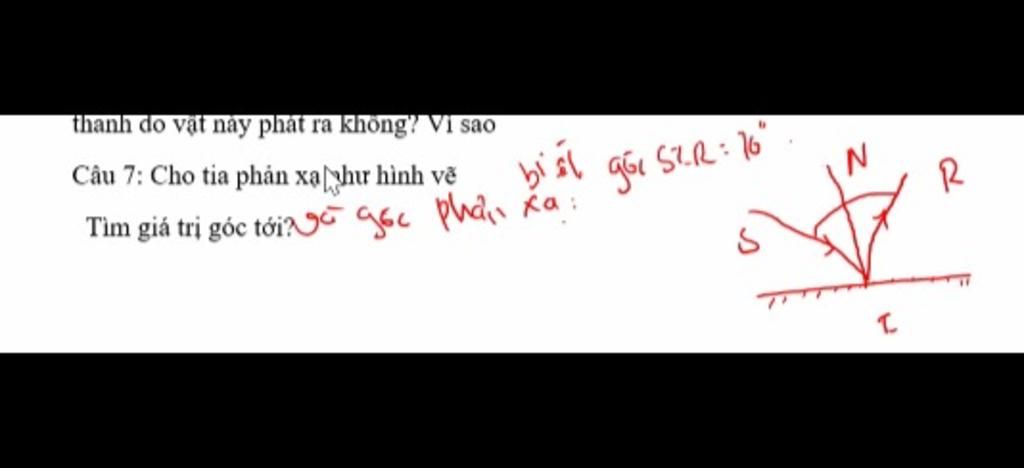 thanh do vật này phát ra không? Vì sao
Câu 7: Cho tia phản xạ như hình vẽ biết góc SIR = 70°
Tìm giá trị góc tới? và góc phản xạ:
N
R
S
I